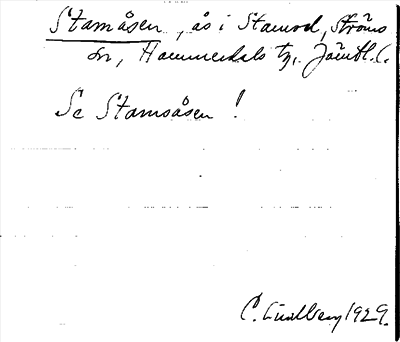 Stamåsen, ås i Stamsel, Ströms
sn, Hammerdals tg, Jämtl. l.
Se Stamsåsen!
C. Lindberg 1929.